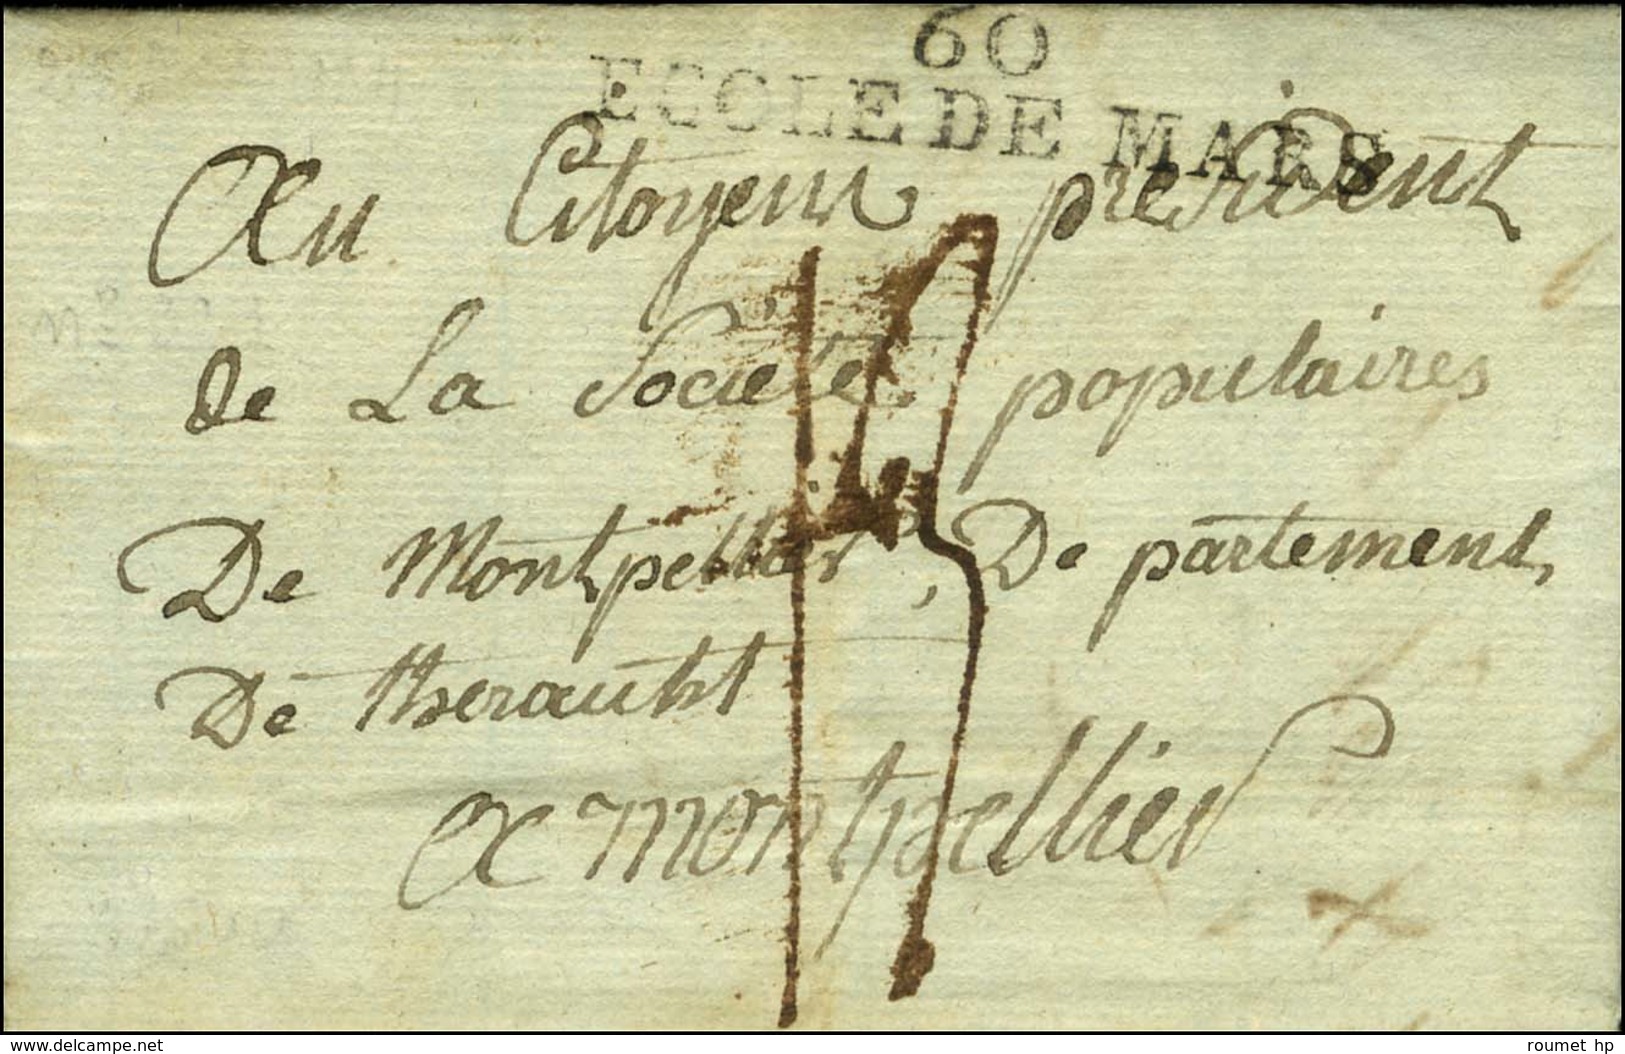 60
ECOLE DE MARS
Au Citoyen president
de La Societé populaires
De Montpellier, De partement
De Lherauht
a montpellier
13
www.delcampe.net
roumet hp